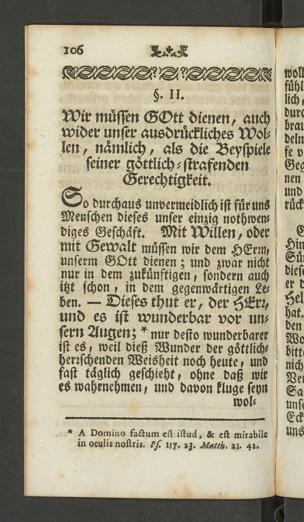 106
§. II.
Wir müssen GOtt dienen, auch
wider unser ausdrückliches Wol-
len, nämlich, als die Beyspiele
seiner göttlich-strafenden
Gerechtigkeit.
So durchaus unvermeidlich ist für uns
Menschen dieses unser einzig nothwen-
diges Geschäft. Mit Willen, oder
mit Gewalt müssen wir dem HErrn,
unserm GOtt dienen; und zwar nicht
nur in dem zukünftigen, sondern auch
itzt schon, in dem gegenwärtigen Le-
ben. — Dieses thut er, der HErr,
und es ist wunderbar vor un-
sern Augen; * nur desto wunderbarer
ist es, weil dieß Wunder der göttlich-
herrschenden Weisheit noch heute, und
fast täglich geschieht, ohne daß wir
es wahrnehmen, und davon kluge seyn
wol-
* A Domino factum est istud, & est mirabile
in oculis nostris. Ps. 117. 23. Matth. 21. 42.